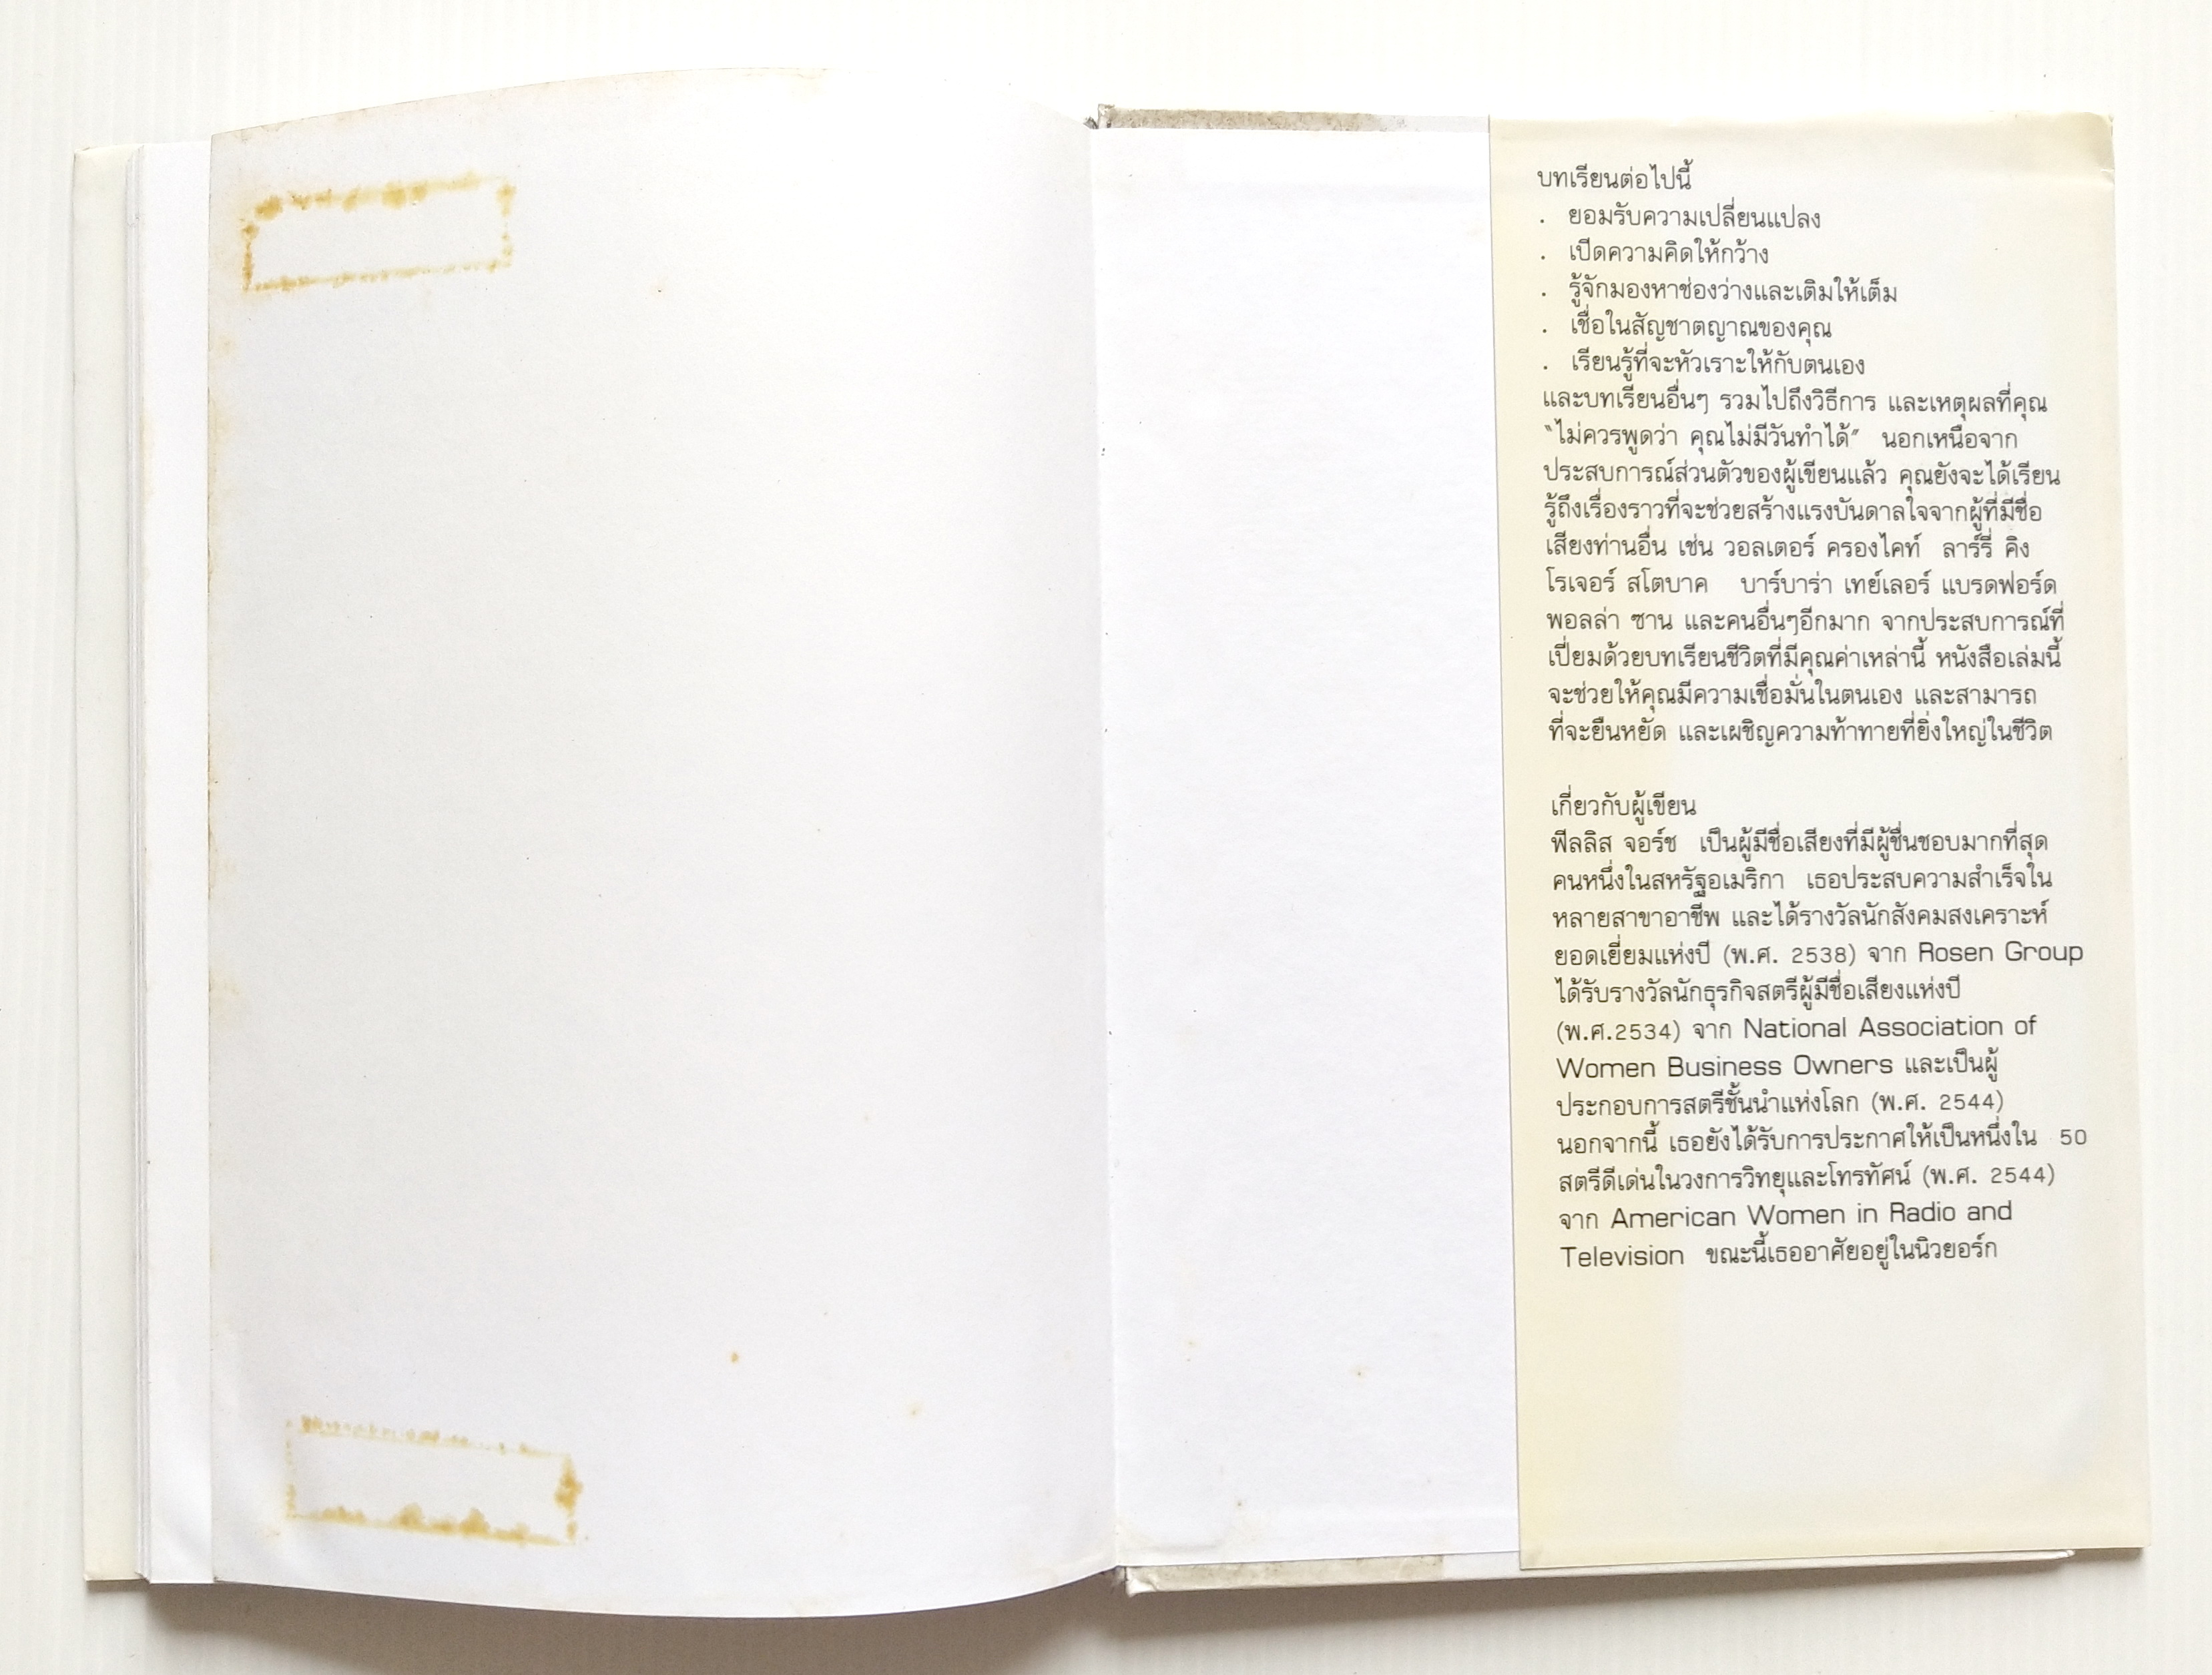 บทเรียนต่อไปนี้
. ยอมรับความเปลี่ยนแปลง
. เปิดความคิดให้กว้าง
. รู้จักมองหาช่องว่างและเติมให้เต็ม
. เชื่อในสัญชาตญาณของคุณ
. เรียนรู้ที่จะหัวเราะให้กับตนเอง
และบทเรียนอื่นๆ รวมไปถึงวิธีการ และเหตุผลที่คุณ
"ไม่ควรพูดว่า คุณไม่มีวันทำได้" นอกเหนือจาก
ประสบการณ์ส่วนตัวของผู้เขียนแล้ว คุณยังจะได้เรียน
รู้ถึงเรื่องราวที่จะช่วยสร้างแรงบันดาลใจจากผู้ที่มีชื่อ
เสียงท่านอื่น เช่น วอลเตอร์ ครองไคท์ ลาร์รี่ คิง
โรเจอร์ สโตบาค บาร์บาร่า เทย์เลอร์ แบรดฟอร์ด
พอลล่า ซาน และคนอื่นๆอีกมาก จากประสบการณ์ที่
เปี่ยมด้วยบทเรียนชีวิตที่มีคุณค่าเหล่านี้ หนังสือเล่มนี้
จะช่วยให้คุณมีความเชื่อมั่นในตนเอง และสามารถ
ที่จะยืนหยัด และเผชิญความท้าทายที่ยิ่งใหญ่ในชีวิต
เกี่ยวกับผู้เขียน
ฟีลลิส จอร์ช เป็นผู้มีชื่อเสียงที่มีผู้ชื่นชอบมากที่สุด
คนหนึ่งในสหรัฐอเมริกา เธอประสบความสำเร็จใน
หลายสาขาอาชีพ และได้รางวัลนักสังคมสงเคราะห์
ยอดเยี่ยมแห่งปี (พ.ศ. 2538) จาก Rosen Group
ได้รับรางวัลนักธุรกิจสตรีผู้มีชื่อเสียงแห่งปี
(พ.ศ.2534) จาก National Association of
Women Business Owners และเป็นผู้
ประกอบการสตรีชั้นนำแห่งโลก (พ.ศ. 2544)
นอกจากนี้ เธอยังได้รับการประกาศให้เป็นหนึ่งใน 50
สตรีดีเด่นในวงการวิทยุและโทรทัศน์ (พ.ศ. 2544)
จาก American Women in Radio and
Television ขณะนี้เธออาศัยอยู่ในนิวยอร์ก